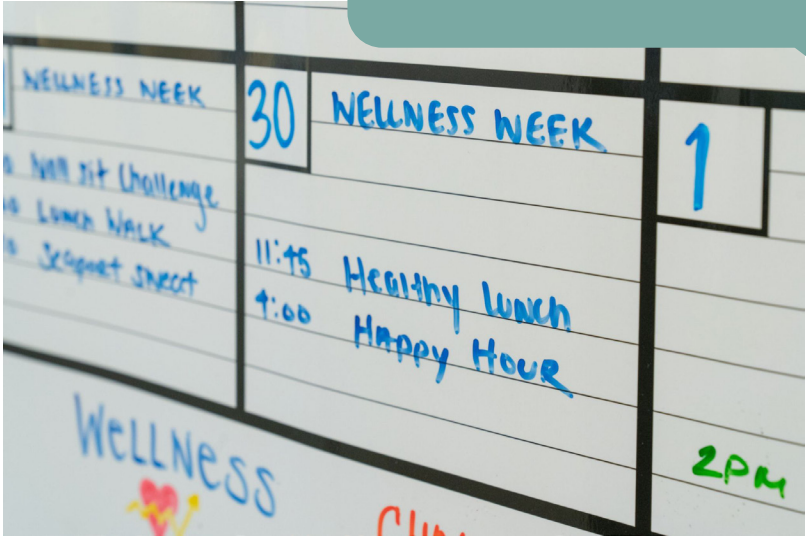 WELLNESS WEEK
Wall sit Challenge
Lunch WALK
Seaport sweat
30 WELLNESS WEEK
11:45 Healthy lunch
4:00 HAPPY HOUR
1
2PM
WELLNESS